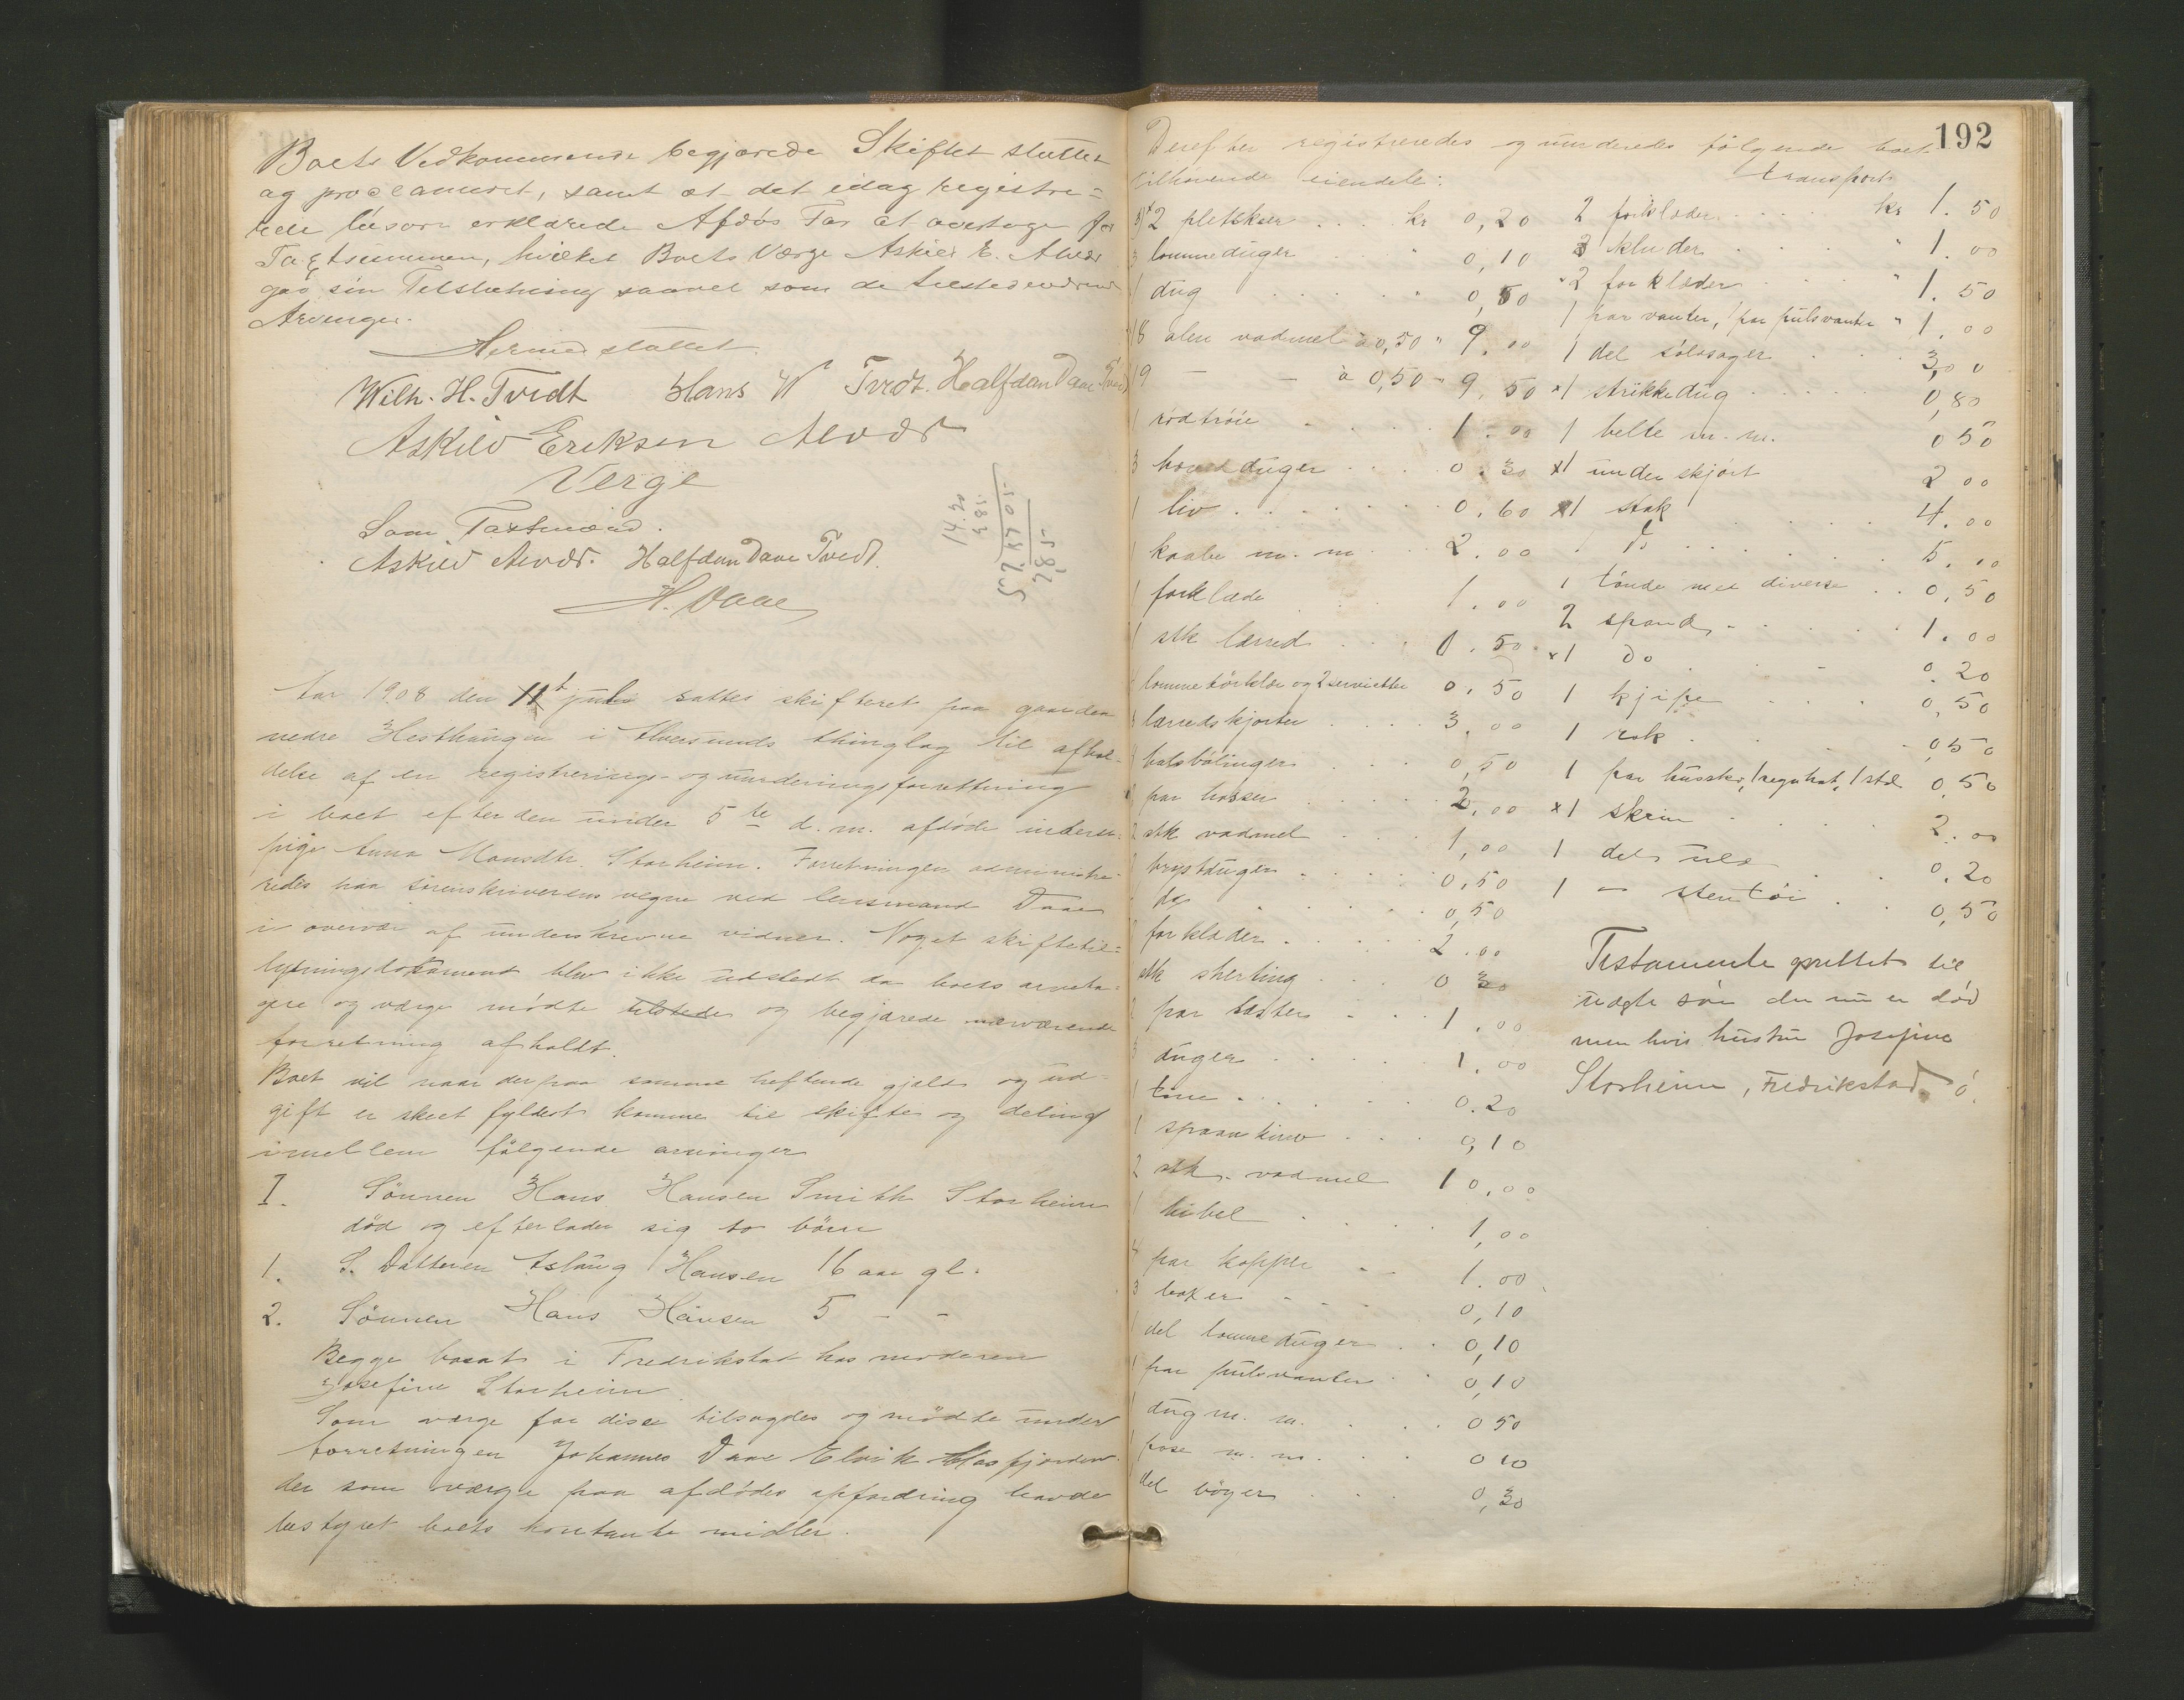 Boets Vedkommende begjærede Skiftet sluttet
og proclameret, samt at det idag registre=
rede løsøre erklærede Afdøs Far at overtage for
Taxtsummen, hvilket Boets Værge Askild E. Alvær
gav sin Tilslutning saavel som de tilstedeværende
Arvinger.
Hermed sluttet.
Wilh. H. Tvedt Hans W Tvedt. Halfdan Daae Tvedt
Askild Eriksen Alvær
Verge
Som Taxtmænd.
Askild Alvær. Halfdan Daae Tvedt.
H. Daae
14.20
3 85
Aar 1908 den 11t juli sattes skifteret paa gaarden
nedre Hesthaugen i Alversunds thinglag til afhol-
delse af en registrerings- og vurderingsforrettning
i boet efter den under 5te d. m. afdøde inderst-
pige Anna Monsdtr. Storheim. Forretningen administre-
redes paa sorenskriverens vegne ved lensmand Daae
i overvær af underskrevne vidner. Noget skiftetil=
lysningsdokument blev ikke udstedt da boets arveta=
gere og værge mødte tilstede og begjærede nærværende
forretning afholdt.
Boet vil naar der paa samme heftende gjæld og ud-
gift er skeet fyldest komme til skifte og deling
imellem følgende arvinger
I. Sønnen Hans Hansen Smith Storheim
død og efterlader sig to børn
1. S. Datteren Aslaug Hansen 16 aar gl.
2. Sønnen Hans Hansen 5 - -
Begge bosat i Fredrikstad hos moderen
Josefine Storheim
Som værge for disse tilsagdes og mødte under
forretningen Johannes Daae Elvik Masfjorden
der som værge paa afdødes opfordring havde
bestyret boets kontante midler.
192
Derefter registreredes og vurderedes følgende boet
tilhørende eiendele:
2 pletskeer . . . . kr 0,20
3 lommeduger " 0,10
1 dug . . . . " 0,50
18 alen vadmel à 0,50 " 9.00
19 — — à 0,50 " 9.50
1 rød trøie . . . . 1.00
3 hovedduger . . . . 0.30
1 liv . . . . 0.60
1 kaabe m. m . . 2.00
1 forklæde . . 1.00
1 stk lærred . . . 0.50
lommetørklær og 2 servietter 0.50
lærredskjorter . . . . 3.00
halsbølinger . . . 0,50
par hoser . . . . 2,00
2 stk vadmel . . . 1,00
brystduger . . . . 0.50
do . . . . 0,50
forklæder . . . . 2.00
stk sherting . . . 0 30
2 par baster . . . 1.00
duger . . . . 1.00
1 tine . . . . 0.20
1 spaankurv . . . 0,10
2 stk. vadmel 10,00
1 bibel . . . . 1,00
4 par kopper . . 1.00
3 bøker . . . . 0,10
1 del lommeduger . . 0,10
1 par pulsvanter . . 0,10
1 dug m. m. . . 0 50
1 pose m. m. . . . 0 10
1 del bøger . . . 0,30
transport
2 forklæder . . . . kr 1.50
3 kluder . . . . " 1.00
2 forklæder . . . " 1.50
1 par vanter, 1 par pulsvanter " 1.00
1 del sølvsager . . 3,00
x1 strikkedug . . . . 0,80
1 belte m. m. 0 50
x1 underskjørt 2 00
x1 stak . . . . 4.00
1 do . . . . 5.00
1 tønde med diverse . . 0.50
2 spand . . . . 1.00
x1 do . . . . 0.20
1 kjipe . . . 0,50
1 rok . . . . 0 50
1 par hussko, 1 regnhat, 1 stol 0,50
x1 skrin . . . . 2.00
1 del uld . . 0.20
1 — stentøi . . 0,50
Testamente oprettet til
uægte søn der nu er død
men hvis hustru Josefine
Storheim, Fredrikstad